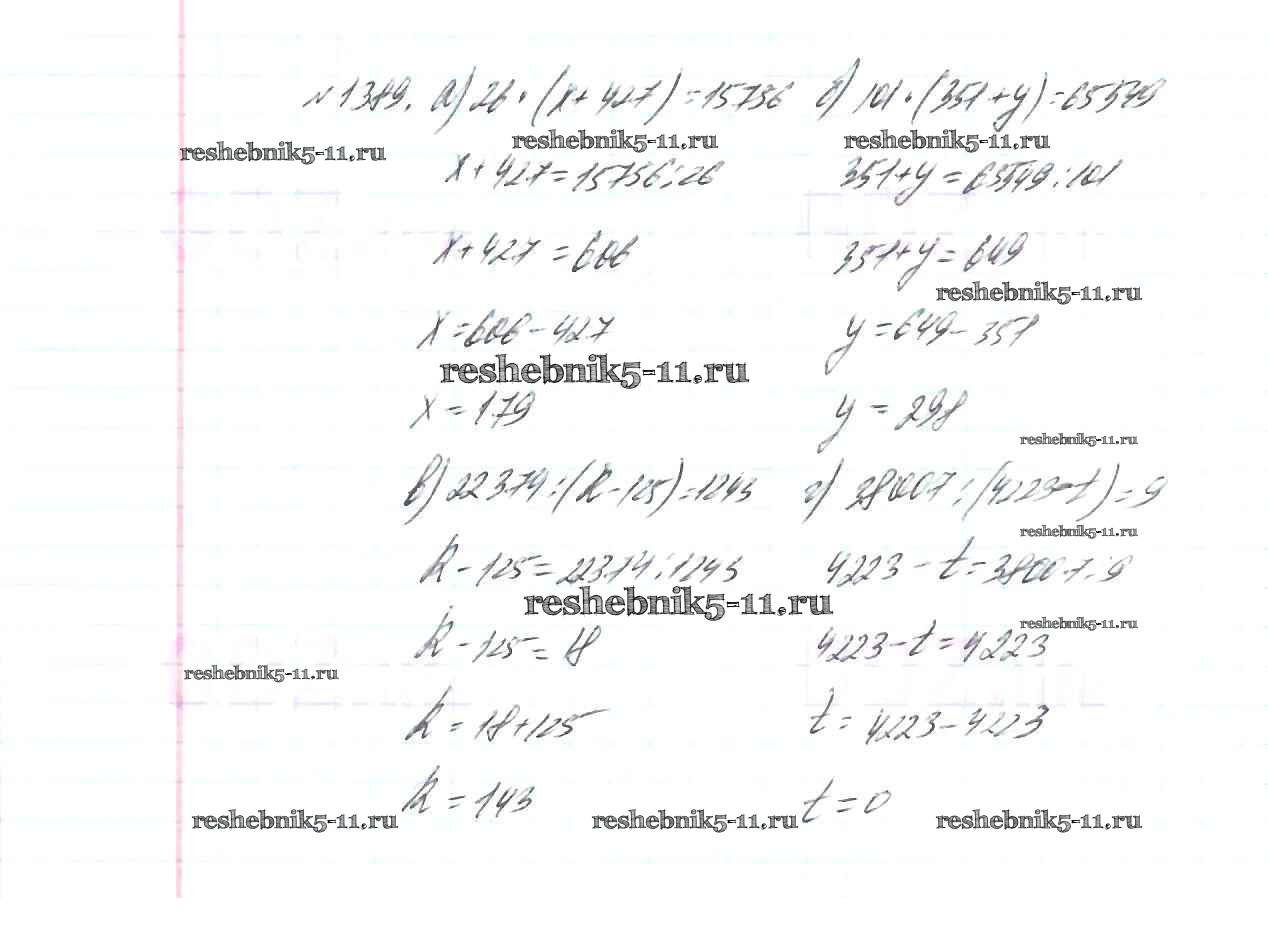 №1389. а) 26 · (x + 427) = 15756 б) 101 · (351 + y) = 65549
reshebnik5-11.ru reshebnik5-11.ru reshebnik5-11.ru
x + 427 = 15756 : 26 351 + y = 65549 : 101
x + 427 = 606 351 + y = 649
reshebnik5-11.ru
x = 606 - 427 y = 649 - 351
reshebnik5-11.ru
x = 179 y = 298
reshebnik5-11.ru
в) 22374 : (k - 125) = 1243 г) 38007 : (4223 - t) = 9
reshebnik5-11.ru
k - 125 = 22374 : 1243 4223 - t = 38007 : 9
reshebnik5-11.ru
reshebnik5-11.ru
k - 125 = 18 4223 - t = 4223
reshebnik5-11.ru
k = 18 + 125 t = 4223 - 4223
k = 143 t = 0
reshebnik5-11.ru reshebnik5-11.ru reshebnik5-11.ru